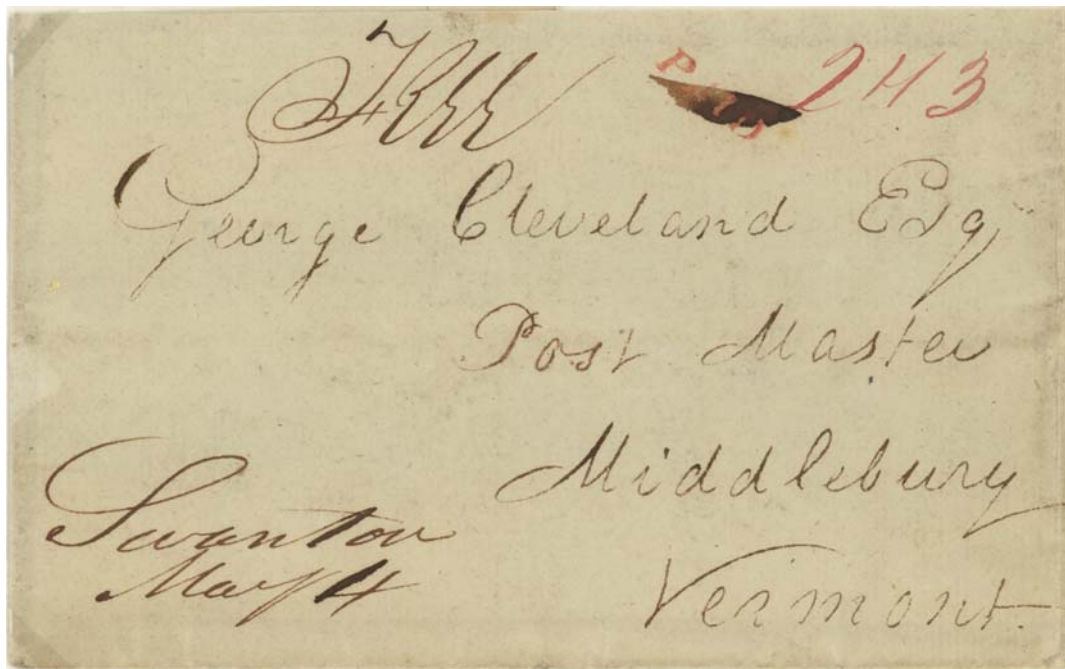 Free PAID 243
George Cleveland Esq
Post Master
Middlebury
Vermont.
Swanton
May 14